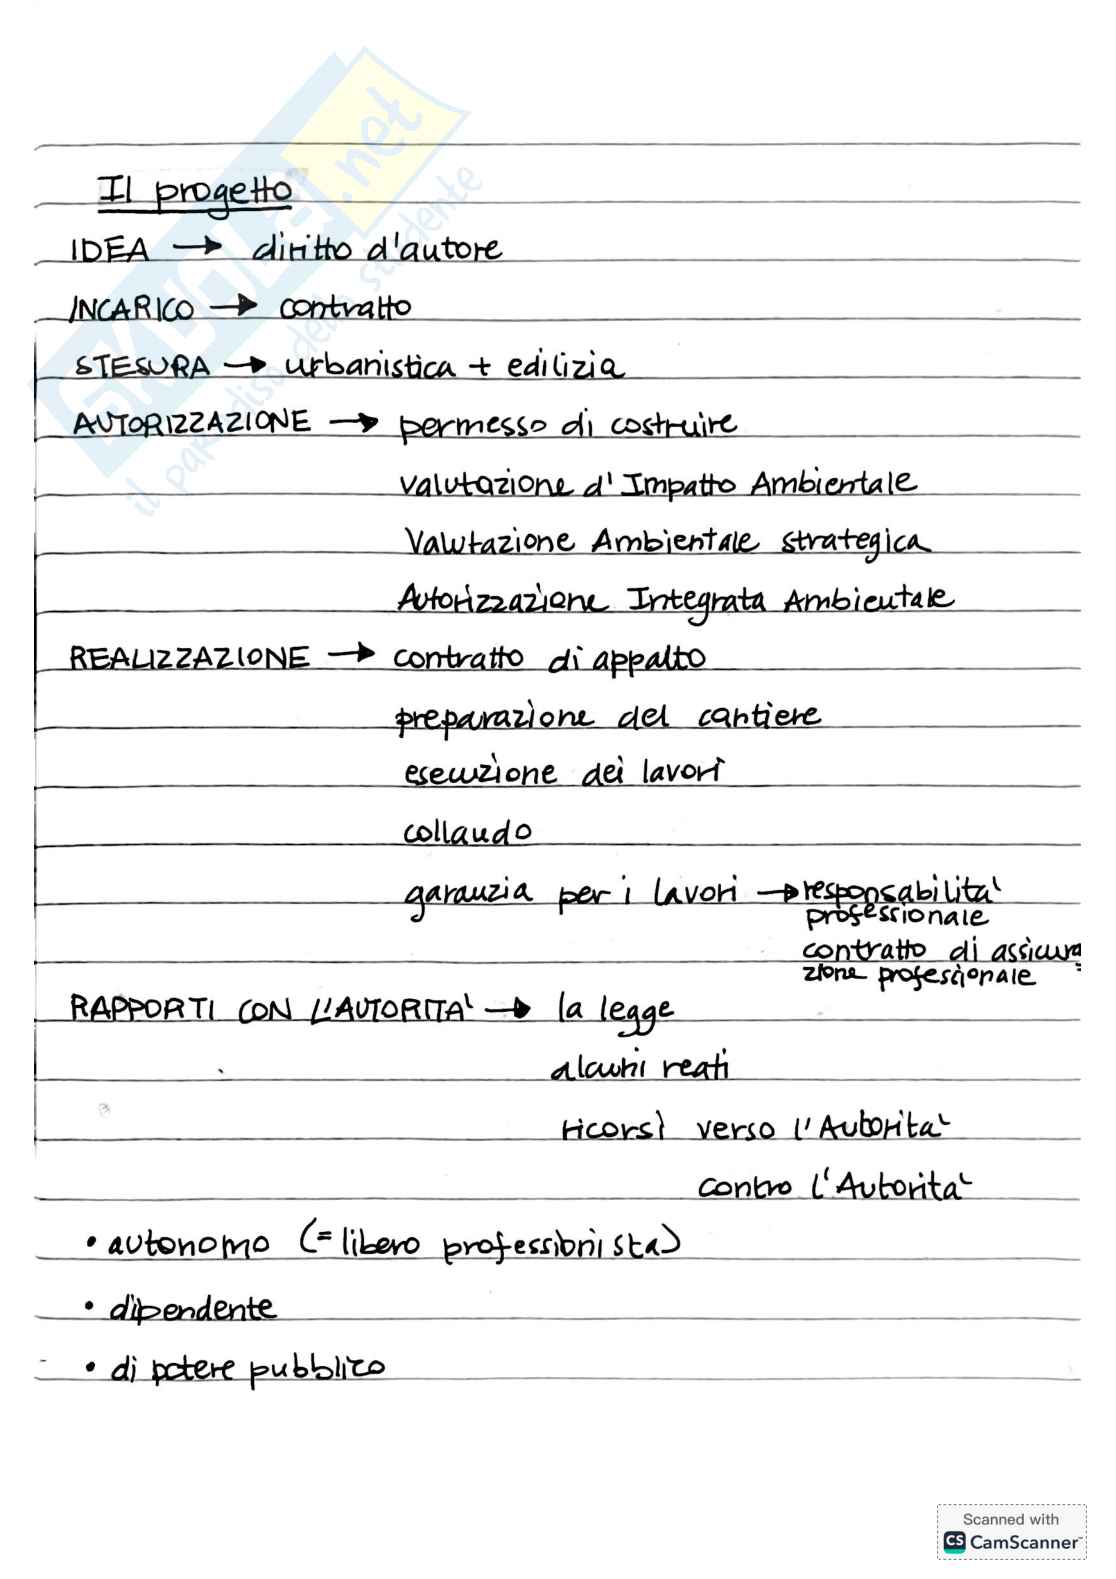 Il progetto
IDEA → diritto d'autore
INCARICO → contratto
STESURA → urbanistica + edilizia
AUTORIZZAZIONE → permesso di costruire
valutazione d'Impatto Ambientale
Valutazione Ambientale strategica
Autorizzazione Integrata Ambientale
REALIZZAZIONE → contratto di appalto
preparazione del cantiere
esecuzione dei lavori
collaudo
garanzia per i lavori → responsabilità
professionale
contratto di assicura
zione professionale
RAPPORTI CON L'AUTORITA' → la legge
alcuni reati
ricorsi verso l'Autorità
contro l'Autorità
• autonomo (= libero professionista)
• dipendente
• di potere pubblico
SKUOLA.net
il paradiso dello studente
Scanned with
CS CamScanner